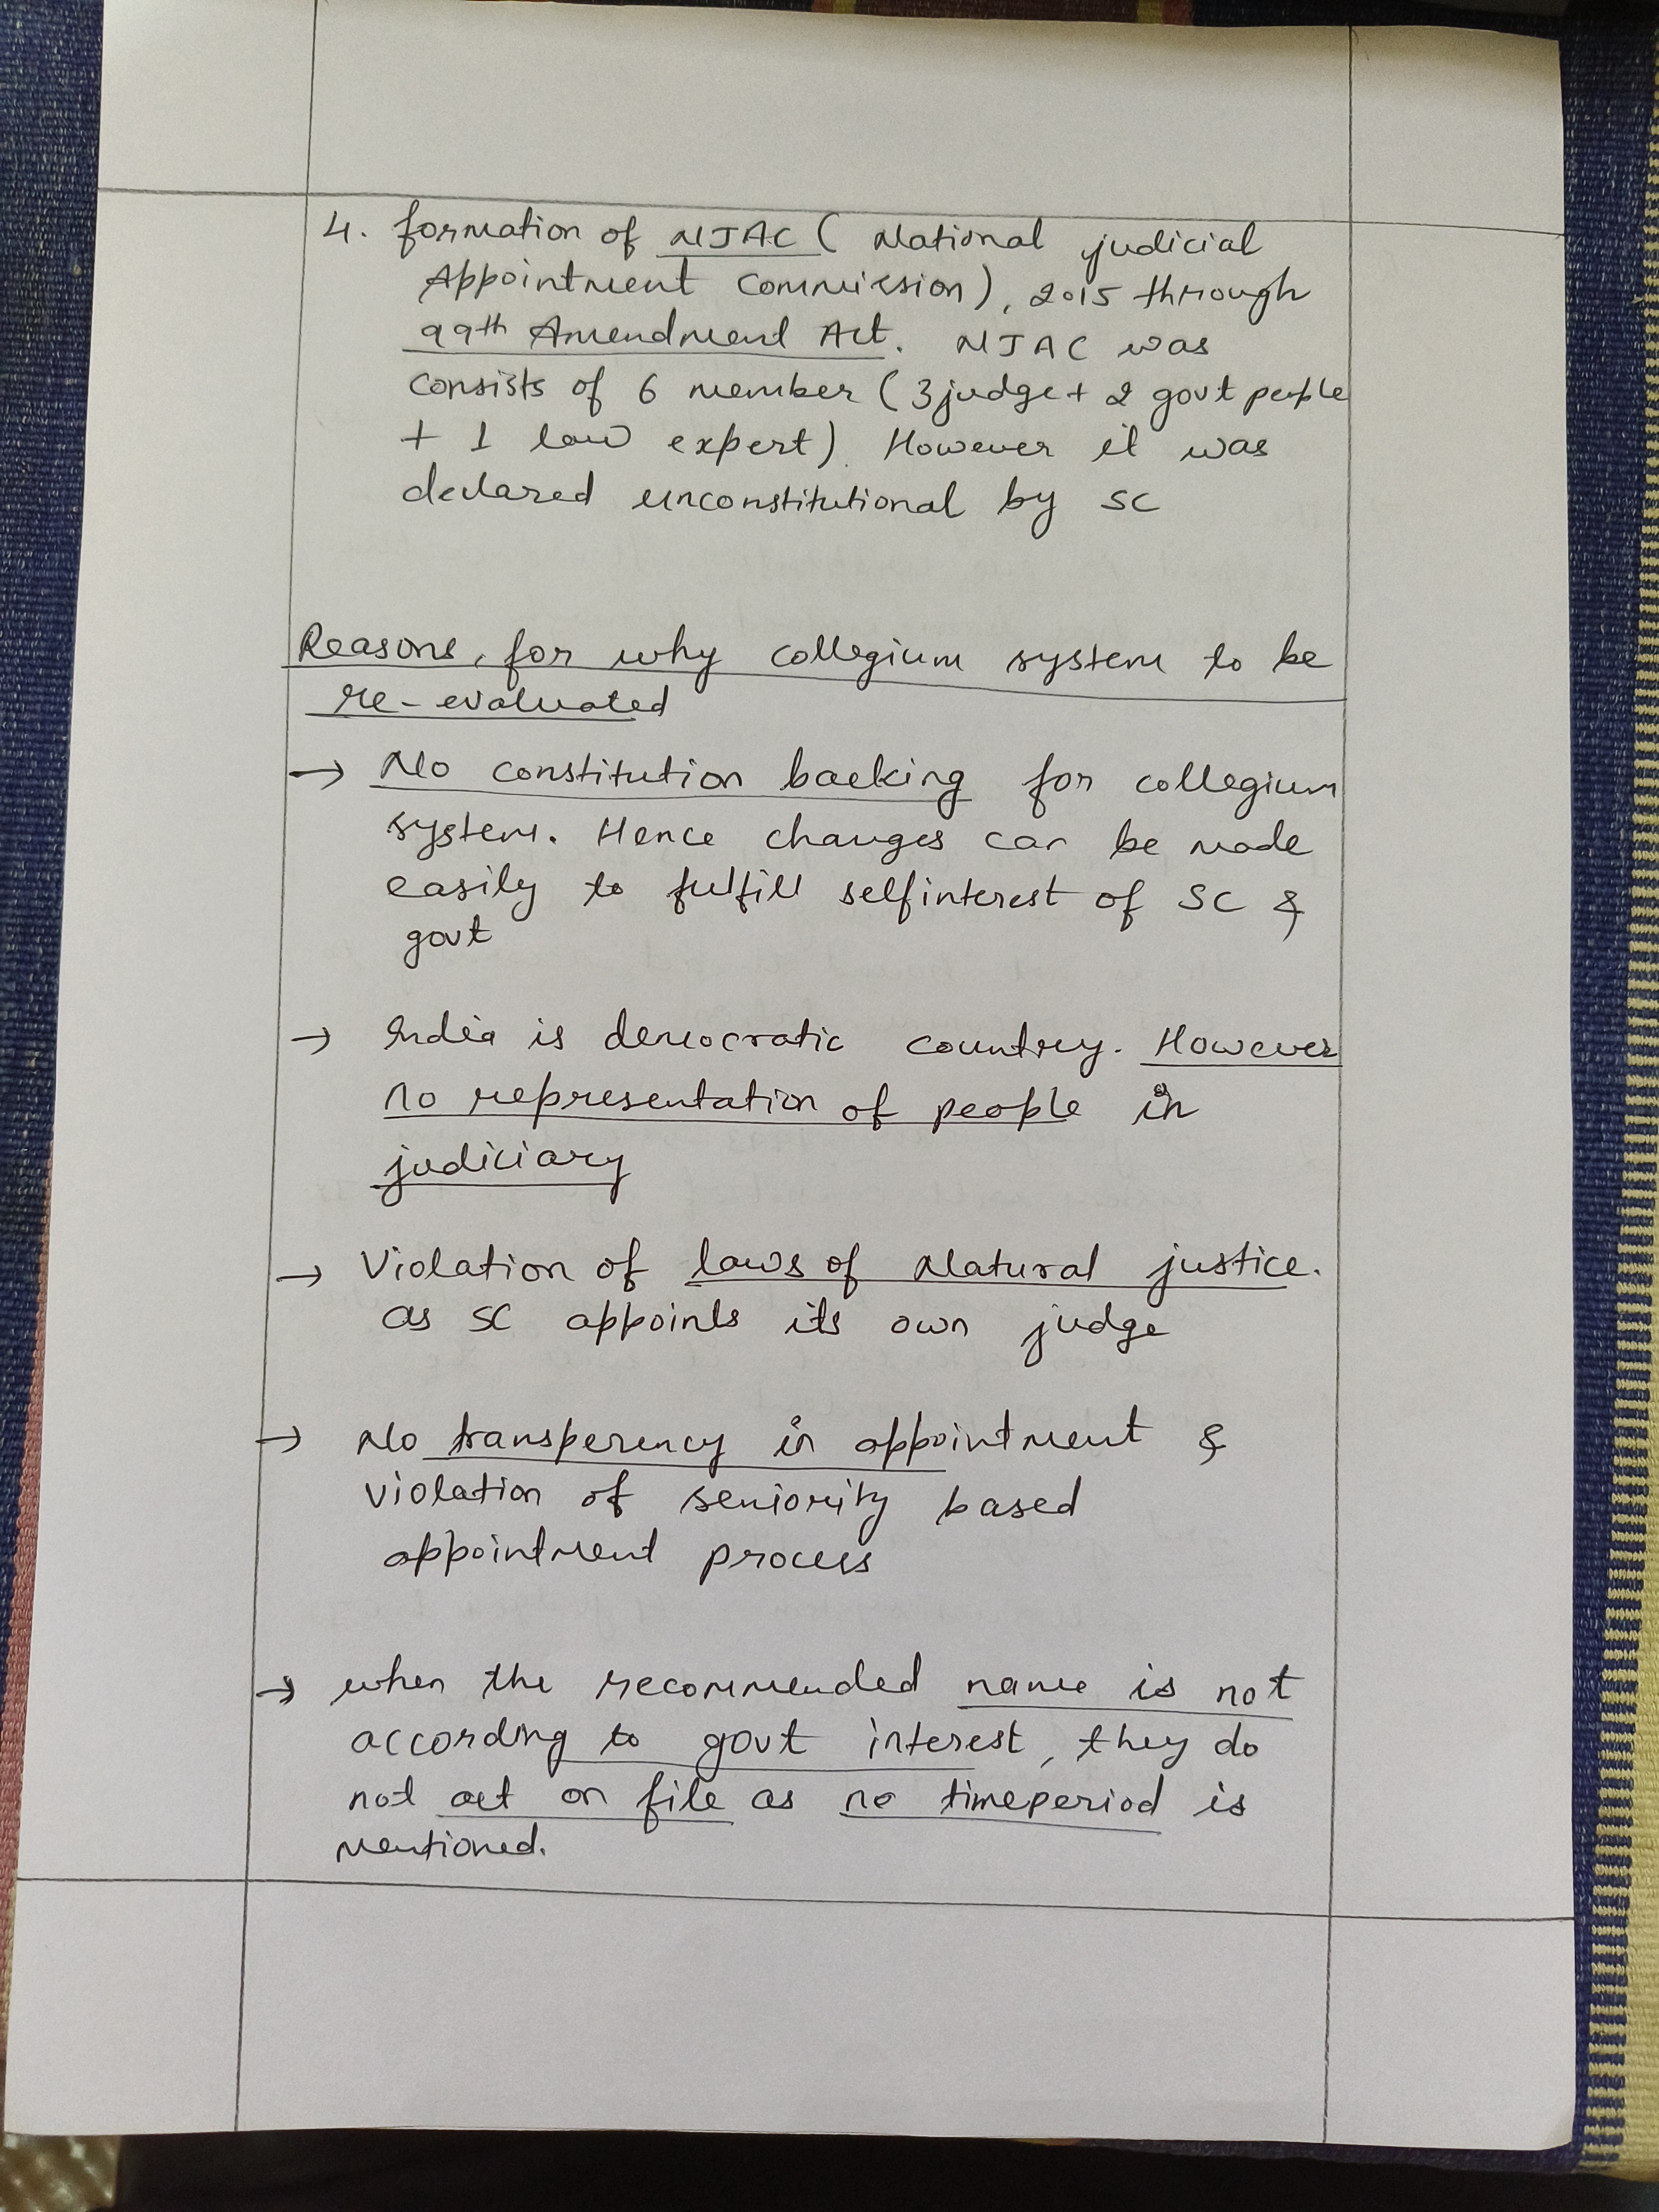 4. formation of NJAC ( National judicial
Appointment Commission), 2015 through
99th Amendment Act. NJAC was
consists of 6 member (3 judge + 2 govt people
+ 1 law expert). However it was
declared unconstitutional by SC
Reasons, for why collegium system to be
re-evaluated
→ No constitution backing for collegium
system. Hence changes can be made
easily to fulfill selfinterest of SC &
govt
→ India is democratic country. However
no representation of people in
judiciary
→ Violation of laws of Natural justice.
as SC appoints its own judge
→ No transperency in appointment &
violation of seniority based
appointment process
→ when the recommended name is not
according to govt interest, they do
not act on file as no timeperiod is
mentioned.